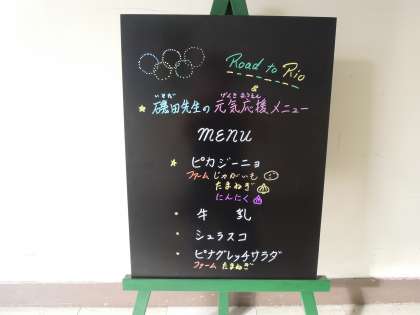 Road to Rio
&
いそだ げんき おうえん
★ 磯田先生の 元気応援メニュー
MENU
★ ピカジーニョ
ファーム じゃがいも
たまねぎ
にんにく
・ 牛 乳
・ シュラスコ
・ ピナグレッチサラダ
ファーム たまねぎ